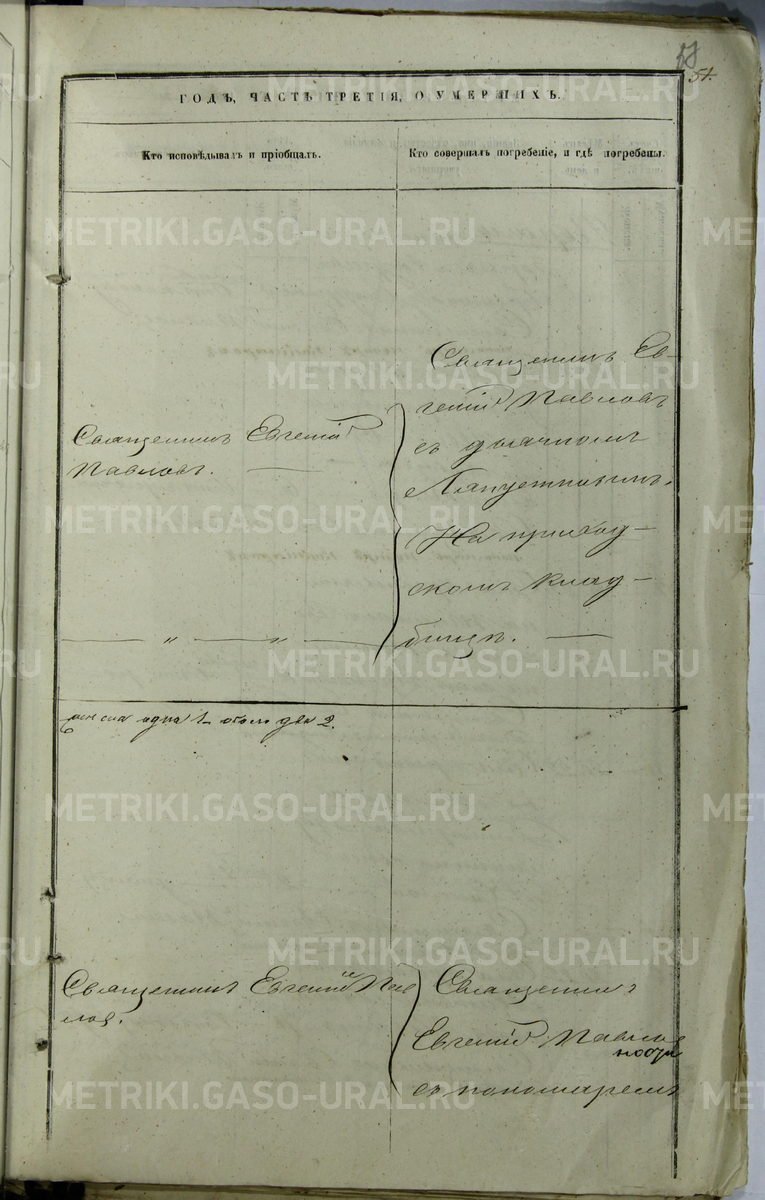 51.
ГОДЪ, ЧАСТЬ ТРЕТІЯ, О УМЕРШИХЪ.
Кто исповѣдывалъ и пріобщалъ.
Кто совершалъ погребеніе, и гдѣ погребены.
Священникъ Евгеній
Павловъ.
Священникъ Ев-
геній Павловъ
съ дьячкомъ
На приход-
скомъ клад-
бищѣ.
одна 1 обоего два 2.
Священникъ Евгеній Пав
лов.
Священникъ
Евгеній Павлов
съ пономаремъ
METRIKI.GASO-URAL.RU